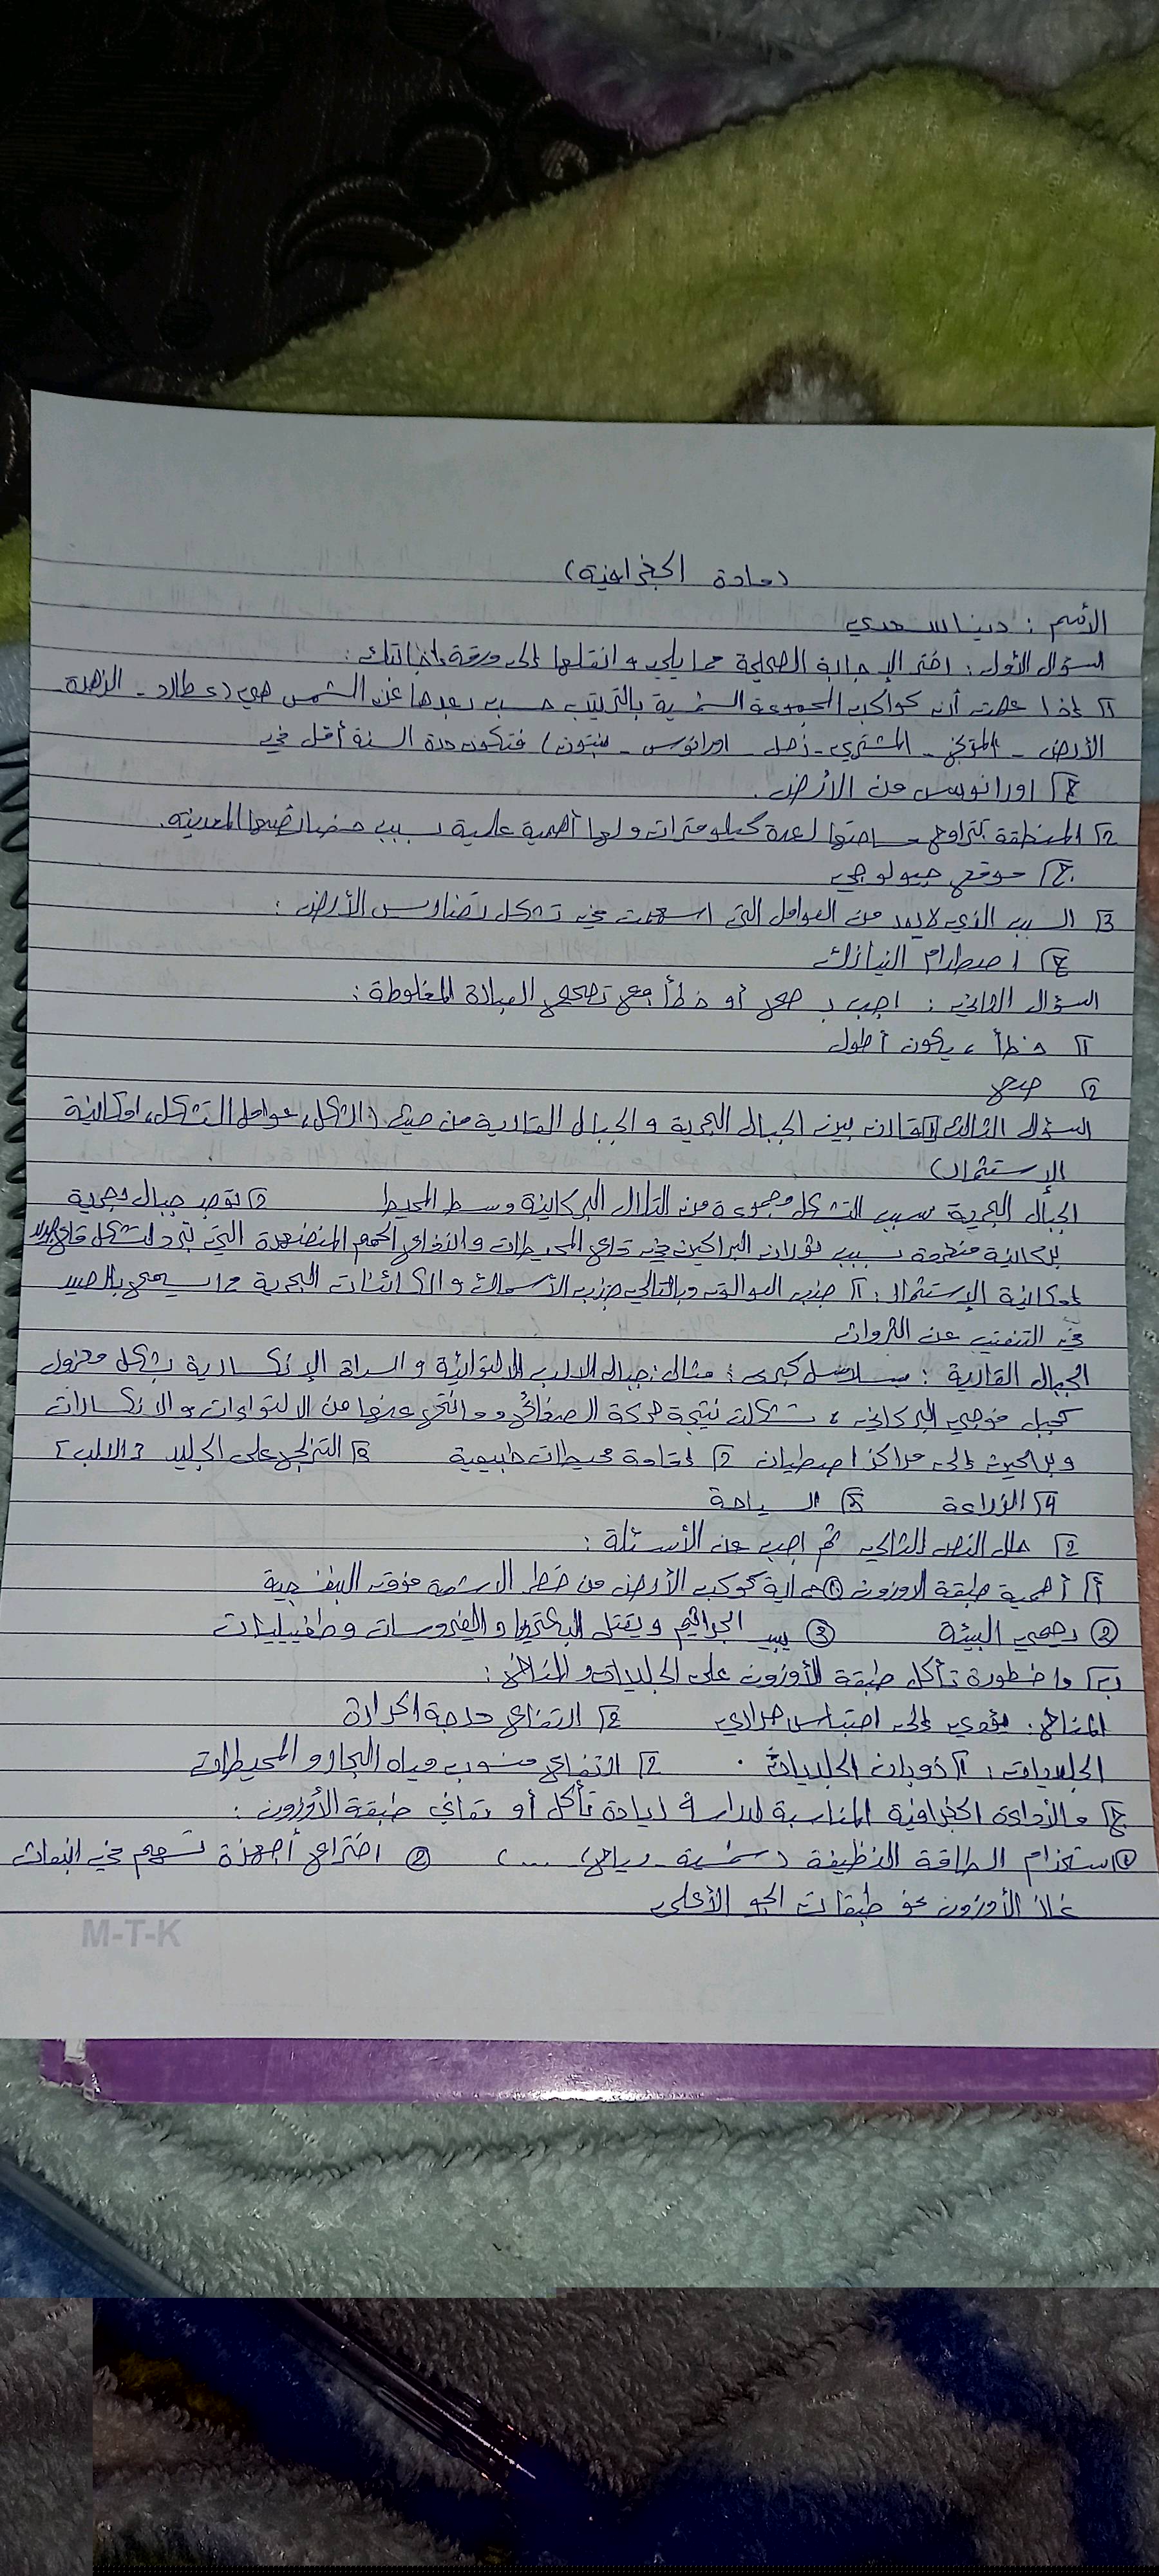 (مادة الجغرافية)
الأسم : دينا سعدي
السؤال الأول : اختر الإجابة الصحيحة مما يلي و انقلها إلى ورقة إجابتك :
1 إذا علمت أن كواكب المجموعة الشمسية بالترتيب حسب بعدها عن الشمس هي (عطارد - الزهرة -
الأرض - المريخ - المشتري - زحل - اورانوس - نبتون) فتكون مدة السنة أقل في
ج اورانوس من الأرض .
2 المنطقة تتراوح مساحتها لعدة كيلو مترات و لها أهمية علمية بسبب خصائصها المعدنيه .
ج موقع جيولوجي
3 السبب الذي لا يعد من العوامل التي اسهمت في تشكل تضاريس الأرض :
ج اصطدام النيازك
السؤال الثاني : اجب ب صح أو خطأ مع تصحيح العبارة المغلوطة :
1 خطأ ، يكون أطول
2 صح
السؤال الثالث 1 قارن بين الجبال البحرية و الجبال القارية من حيث (الشكل، عوامل التشكل، امكانية
الإستثمار)
الجبال البحرية سبب التشكل مجموعة من التلال البركانية وسط المحيط 2 توجد جبال بحرية
بركانية منفردة بسبب ثوران البراكين في قاع المحيطات و اندفاع الحمم المنصهرة التي تبرد لتشكل قاع
إمكانية الإستثمار : 1 جذب العوالق وبالتالي جذب الأسماك و الكائنات البحرية مما يسمح بالصيد
في التنقيب عن الثروات
الجبال القارية : سلاسل كبرى : مثال : جبال الالب الالتوائية و السراة الإنكسارية بشكل معزول
كجبل فوجي البركاني ، تشكلت نتيجة حركة الصفائح و ما نتج عنها من الالتواءات و الانكسارات
و براكين إلى مراكز اصطياف 2 إقامة محيطات طبيعية 3 التزلج على الجليد [الالب]
4 الزراعة 5 السياحة
2 حلل النص التالي ثم اجب عن الأسئلة :
أ أهمية طبقة الاوزون 1 حماية كوكب الأرض من خطر الاشعة فوق البنفسجية
2 يحمي البيئة 3 يبيد الجراثيم و يقتل البكتيريا و الفيروسات و طفيليات
ب ما خطورة تأكل طبقة الأوزون على الجليديات و المناخ :
المناخ : يؤدي إلى احتباس حراري 2 ارتفاع درجة الحرارة
الجليديات : 1 ذوبان الجليديات . 2 ارتفاع منسوب مياه البحار و المحيطات
ج ما الأداة الجغرافية المناسبة لدراسة زيادة تأكل أو تعافي طبقة الأوزون :
1 استخدام الطاقة النظيفة (شمسية - رياح، ....) 2 اختراع أجهزة تسهم في انبعاث
غاز الأوزون نحو طبقات الجو الأعلى
M-T-K